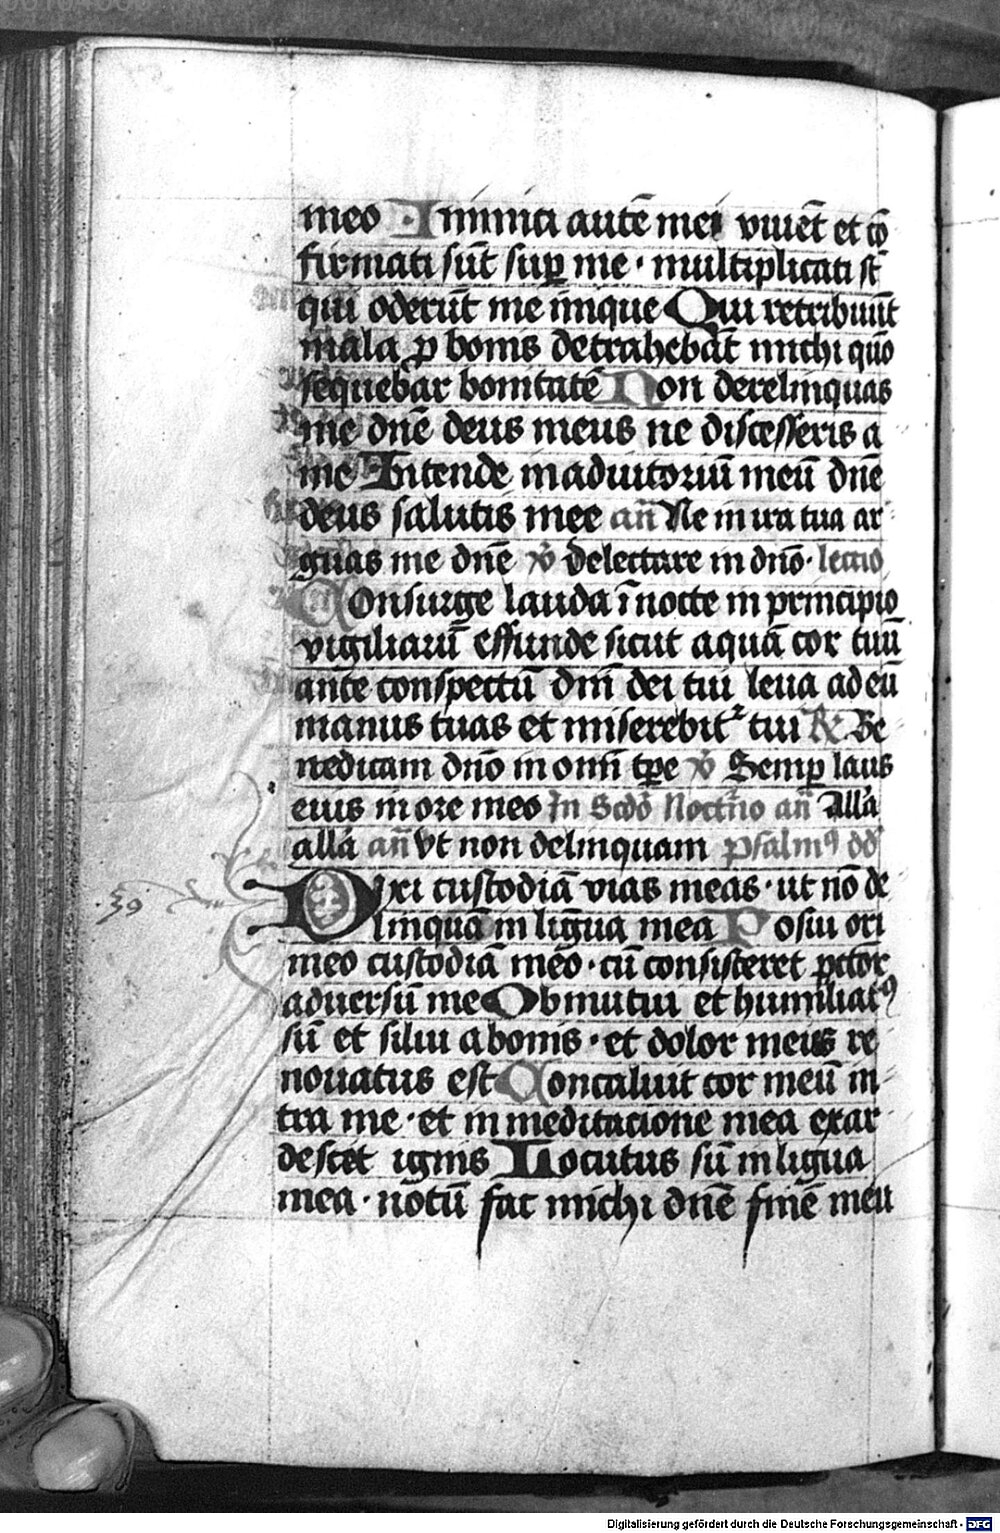 meo Inimici autē mei viuēt et cō
firmati sūt suꝑ me · multiplicati st̄
qui oderūt me inique Qui retribuūt
mala ꝓ bonis detrahebāt michi quo
sequebar bonitatē Non derelinquas
me dn̄e deus meus ne discesseris a
me Intende in adiutoriū meū dn̄e
deus salutis mee an̄ Ne in ira tua ar
guas me dn̄e ℣ delectare in dn̄o · lectio
Consurge lauda ī nocte in principio
vigiliarū effunde sicut aquā cor tuū
ante conspectū dn̄i dei tui leua ad eū
manus tuas et miserebit᷑ tui ℟ Be
nedicam dn̄o in omn̄i tꝑe ℣ Semꝑ laus
eius in ore meo In Scd̄o Noct̄no an̄ Alla
alla an̄ Vt non delinquam psalmꝰ dd̄
Dixi custodiā vias meas · ut nō de
linquā in ligua mea Posui ori
meo custodiā meo · cū consisteret pctōr
aduersū me Obmutui et humiliatꝰ
sū et silui a bonis · et dolor meus re
nouatus est Concaluit cor meū in
tra me · et in meditacione mea exar
descet ignis Locutus sū in ligua
mea · notū fac michi dn̄e finē meū
· 39
Digitalisierung gefördert durch die Deutsche Forschungsgemeinschaft - DFG